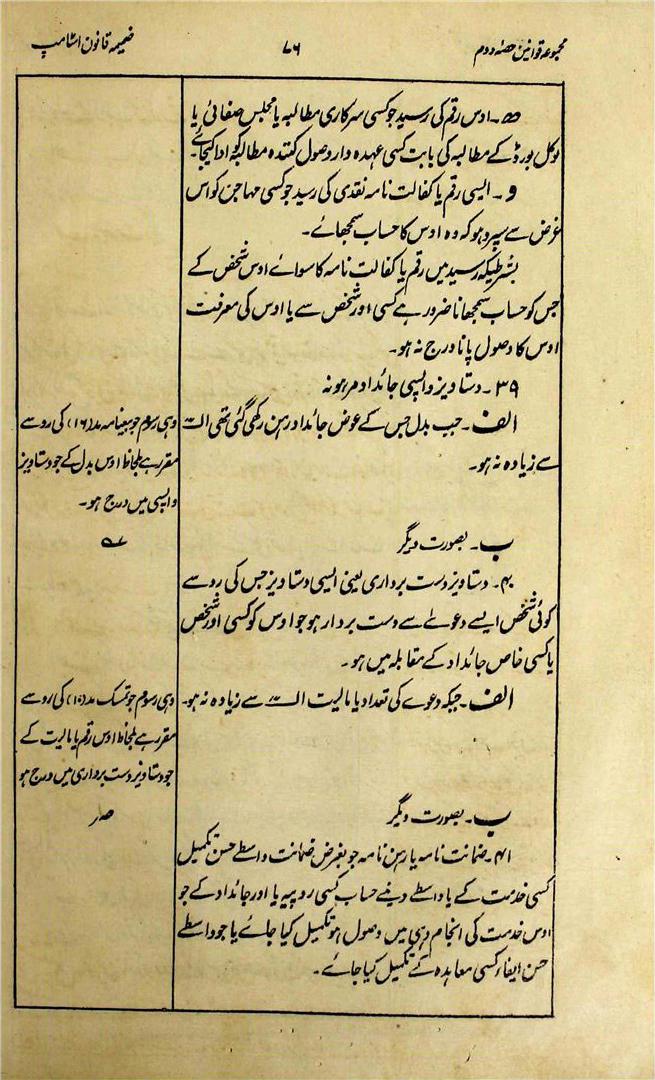 مجموعہ قوانین حصہ دوم
۷۶
ضمیمہ قانون اسٹامپ
ہ۔ اوس رقم کی رسید جو کسی سرکاری مطالبہ یا مجلس صفائی یا
لوکل بورڈ کے مطالبہ کی بابت کسی عہدہ دار وصول کنندہ مطالبہ کو ادا کیجائے۔
و۔ ایسی رقم یا کفالت نامہ نقدی کی رسید جو کسی مہاجن کو اس
غرض سے سپرد ہو کہ وہ اوس کا حساب سمجھائے۔
بشرطیکہ رسید میں رقم یا کفالت نامہ کا سوائے اوس شخص کے
جس کو حساب سمجھانا ضرور ہے کسی اور شخص سے یا اوس کی معرفت
اوس کا وصول پانا درج نہ ہو۔
۳۹۔ دستاویز واپسی جائداد مرہونہ
الف۔ جب بدل جس کے عوض جائداد رہن رکھی گئی تھی
سے زیادہ نہ ہو۔
وہی رسوم جو بیعنامہ مد (۱۶) کی رو سے
مقرر ہے بلحاظ اوس بدل کے جو دستاویز
واپسی میں درج ہو۔
ب۔ بصورت دیگر
۴۰۔ دستاویز دست برداری یعنی ایسی دستاویز جس کی رو سے
کوئی شخص ایسے دعوے سے دست بردار ہو جو اوس کو کسی اور شخص
یا کسی خاص جائداد کے مقابلہ میں ہو۔
الف۔ جبکہ دعوے کی تعداد یا مالیت سے زیادہ نہ ہو۔
وہی رسوم جو تمسک مد (۱۰) کی رو سے
مقرر ہے بلحاظ اوس رقم یا مالیت کے
جو دستاویز دست برداری میں درج ہو
ب۔ بصورت دیگر
۴۱۔ ضمانت نامہ یا رہن نامہ جو بغرض ضمانت واسطے حسن تکمیل
کسی خدمت کے یا واسطے دینے حساب کسی روپیہ یا اور جائداد کے جو
اوس خدمت کی انجام دہی میں وصول ہو تکمیل کیا جائے یا جو واسطے
حسن ایفاء کسی معاہدہ کے تکمیل کیا جائے۔